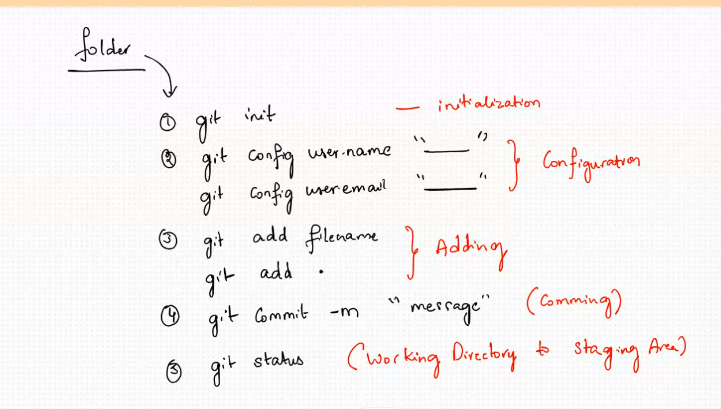 folder
① git init — initialization
② git config user.name "___" } Configuration
git config user.email "___"
③ git add filename } Adding
git add .
④ git commit -m "message" (Comming)
⑤ git status (Working Directory to Staging Area)